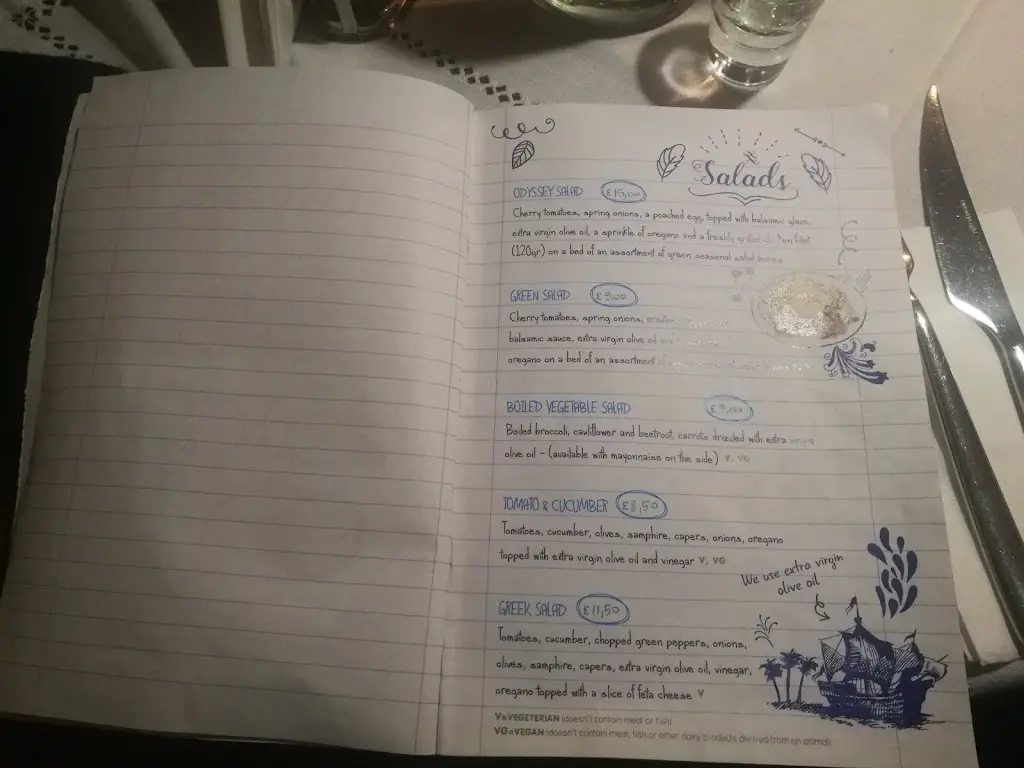 Salads
ODYSSEY SALAD £15,00
Cherry tomatoes, spring onions, a poached egg, topped with balsamic glaze,
extra virgin olive oil, a sprinkle of oregano and a freshly grilled
(120gr) on a bed of an assortment of green seasonal salad leaves
GREEN SALAD £9,00
Cherry tomatoes, spring onions,
balsamic sauce, extra virgin olive oil
oregano on a bed of an assortment
BOILED VEGETABLE SALAD £9,00
Boiled broccoli, cauliflower and beetroot, carrots drizzled with extra virgin
olive oil - (available with mayonnaise on the side) V, VG
TOMATO & CUCUMBER £8,50
Tomatoes, cucumber, olives, samphire, capers, onions, oregano
topped with extra virgin olive oil and vinegar V, VG
We use extra virgin
olive oil
GREEK SALAD £11,50
Tomatoes, cucumber, chopped green peppers, onions,
olives, samphire, capers, extra virgin olive oil, vinegar,
oregano topped with a slice of feta cheese V
V=VEGETERIAN (doesn't contain meat or fish)
VG=VEGAN (doesn't contain meat, fish or other dairy products derived from an animal)